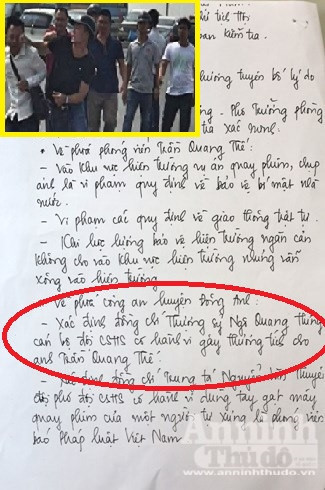 hương tuyên bố lý do
- Phó Trưởng phòng
* Về phía phóng viên Trần Quang Thế:
- Vào khu vực hiện trường vụ án quay phim, chụp
ảnh là vi phạm quy định về bảo vệ bí mật nhà
nước.
- Vi phạm các quy định về giao thông trật tự.
- Khi lực lượng bảo vệ hiện trường ngăn cản
không cho vào khu vực hiện trường nhưng vẫn
xông vào hiện trường.
* Về phía công an huyện Đông Anh:
- Xác định đồng chí Thượng sỹ Ngô Quang Hưng
cán bộ đội CSHS có hành vi gây thương tích cho
anh Trần Quang Thế.
- Xác định đồng chí Trung tá Nguyễn Văn Thuyên
đội phó đội CSHS có hành vi dùng tay gạt máy
quay phim của một người tự xưng là phóng viên
báo Pháp luật Việt Nam
Anninh
Thủđô
WWW.ANNINHTHUDO.VN